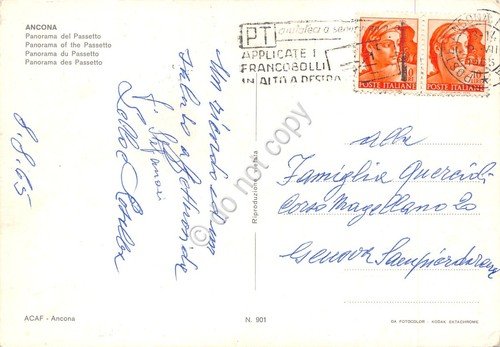 ANCONA
Panorama del Passetto
Panorama of the Passetto
Panorama du Passetto
Panorama des Passetto
PT
aiutateci a servirvi
APPLICATE I
FRANCOBOLLI
IN ALTO A DESTRA
POSTE ITALIANE
POSTE ITALIANE
Un ricordo ed un
saluto affettuoso da
8.8.65
Alla
Famiglia Quercioli
Corso Magellano 20
Genova Sampierdarena
Riproduzione vietata
do not copy
ACAF - Ancona
N. 901
DA FOTOCOLOR - KODAK EKTACHROME